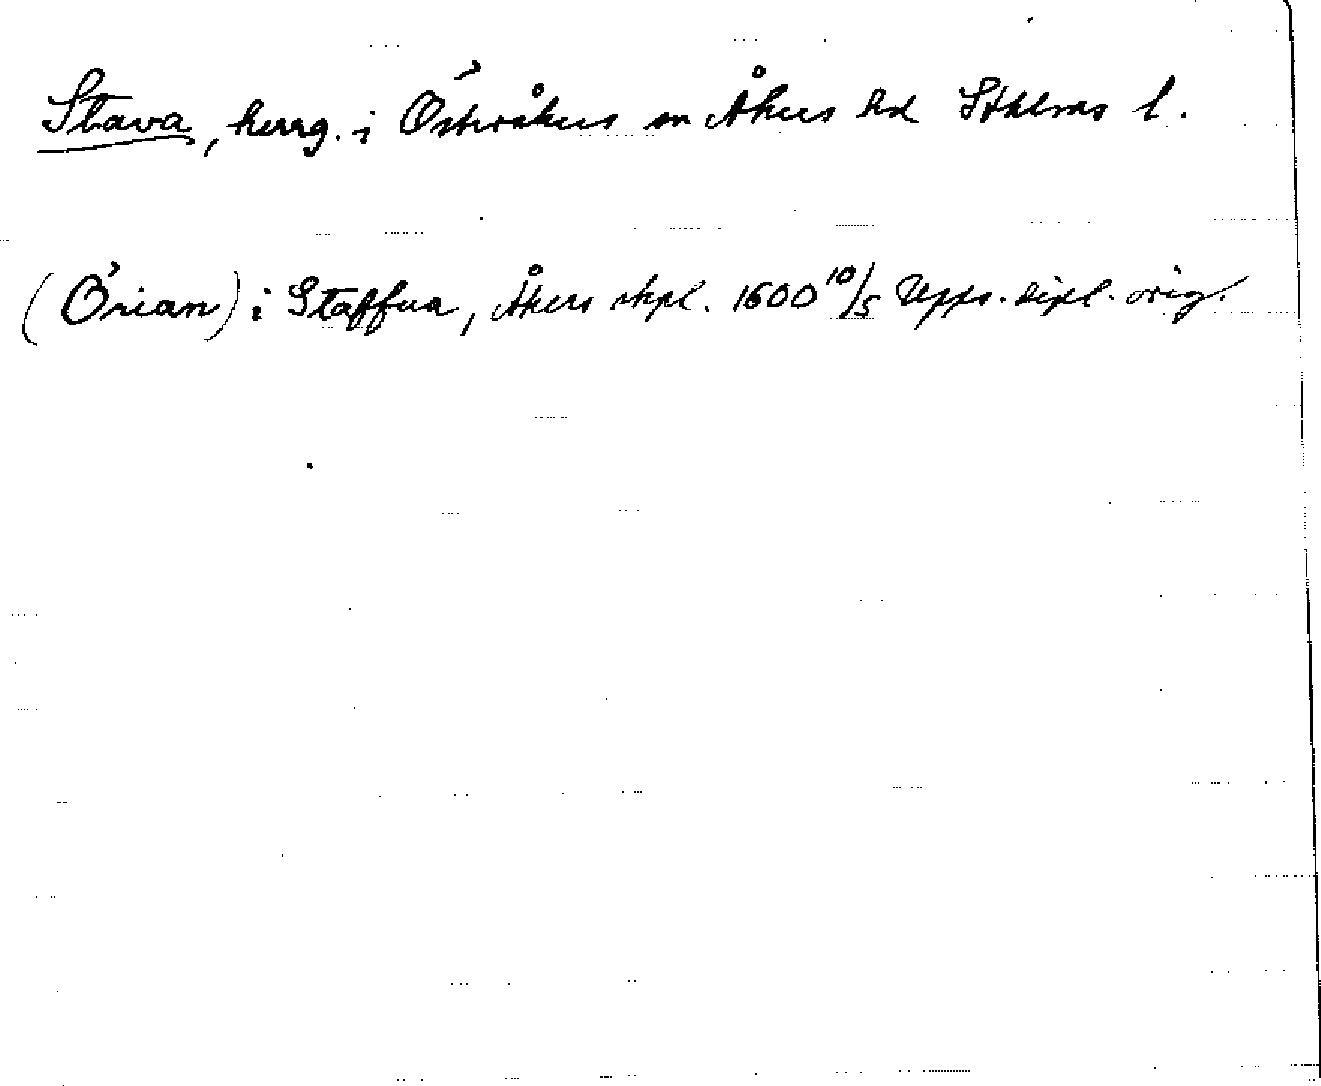 Stava, herrg. i Österåkers sn Åkers hd Sthlms l.
(Örian) i Staffua, Åkers skpl. 1600 10/5 Upps. dipl. orig.